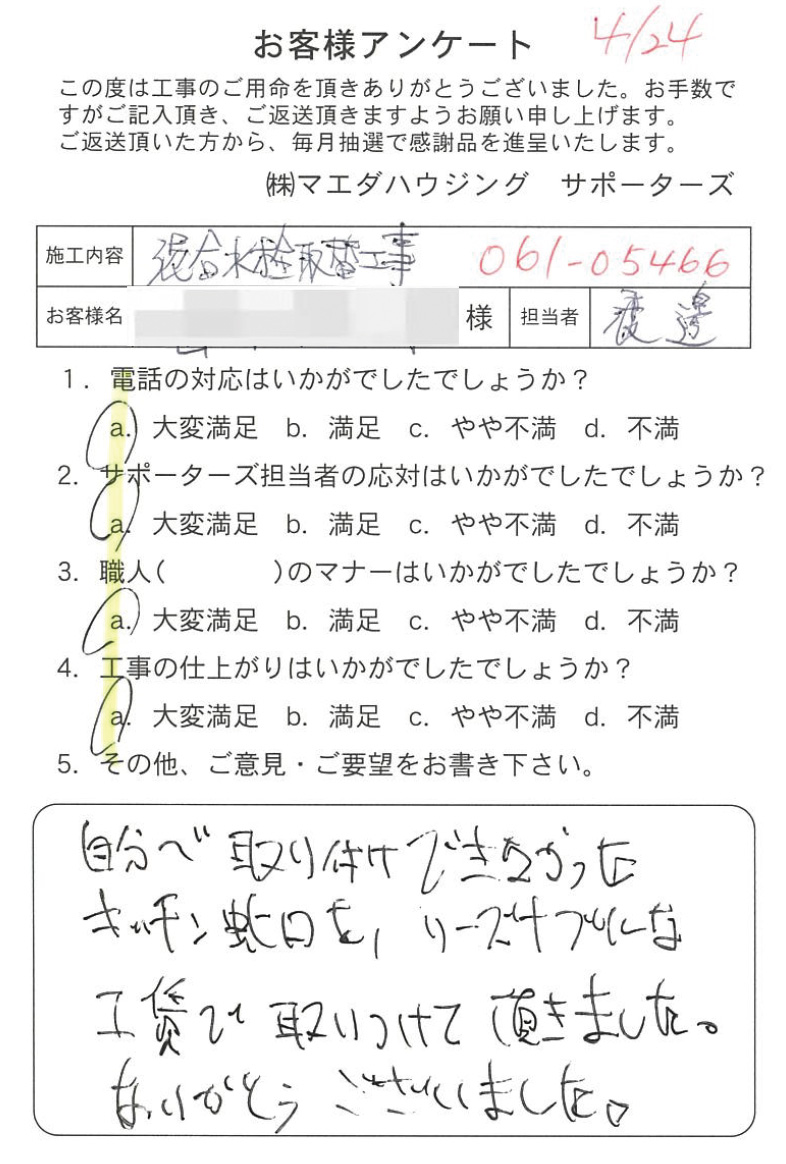 お客様アンケート 4/24
この度は工事のご用命を頂きありがとうございました。お手数で
すがご記入頂き、ご返送頂きますようお願い申し上げます。
ご返送頂いた方から、毎月抽選で感謝品を進呈いたします。
㈱マエダハウジング サポーターズ
施工内容 混合水栓取替工事 061-05466
お客様名 様 担当者 渡邊
1. 電話の対応はいかがでしたでしょうか？
a. 大変満足 b. 満足 c. やや不満 d. 不満
2. サポーターズ担当者の応対はいかがでしたでしょうか？
a. 大変満足 b. 満足 c. やや不満 d. 不満
3. 職人( )のマナーはいかがでしたでしょうか？
a. 大変満足 b. 満足 c. やや不満 d. 不満
4. 工事の仕上がりはいかがでしたでしょうか？
a. 大変満足 b. 満足 c. やや不満 d. 不満
5. その他、ご意見・ご要望をお書き下さい。
自分で取り付けできなかった
キッチン蛇口を,リーズナブルな
工賃で取りつけて頂きました。
ありがとうございました。